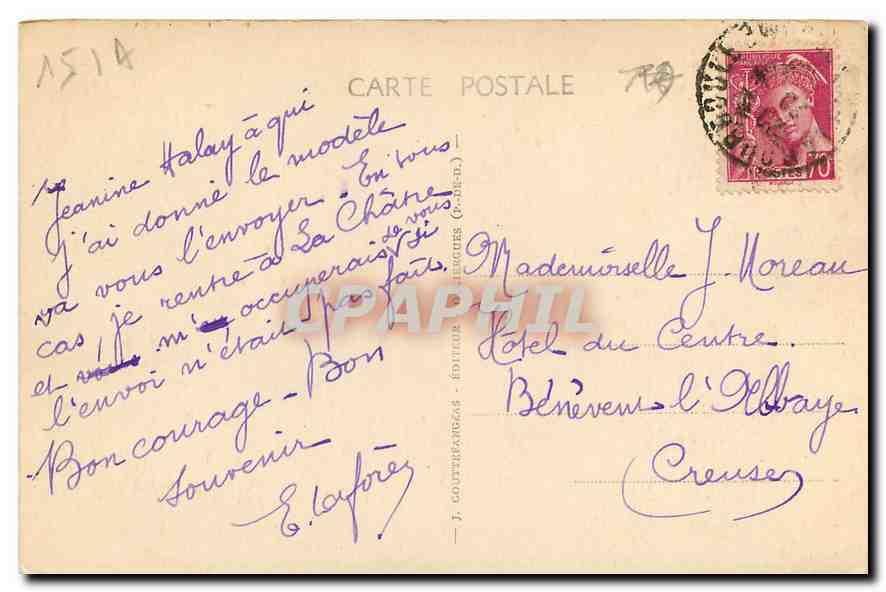 151A
CARTE POSTALE
Jeanine Halay à qui
j'ai donné le modèle
va vous l'envoyer. En tous
cas, je rentre à La Châtre
et m'occuperais de vous si
l'envoi n'était pas fait.
Bon courage - Bon
Souvenir
E. Laforêt
J. GOUTTEFANGEAS - ÉDITEUR (P.-DE-D.)
CPAPHIL
POSTES 70
Mademoiselle J. Moreau
Hôtel du Centre
Bénévent l'Abbaye
Creuse